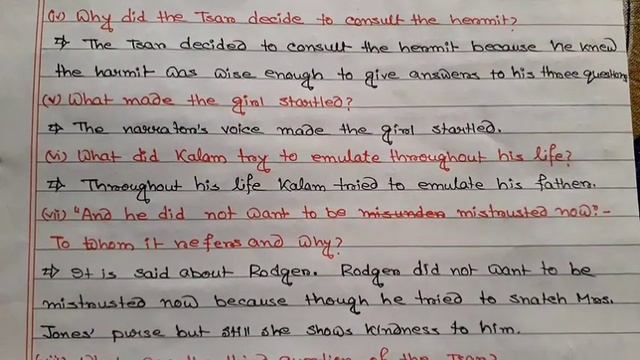 (iv) Why did the Tsar decide to consult the hermit?
⇒ The Tsar decided to consult the hermit because he knew
the harmit was wise enough to give answers to his three questions
(v) What made the girl startled?
⇒ The narrator's voice made the girl startled.
(vi) What did Kalam try to emulate throughout his life?
⇒ Throughout his life Kalam tried to emulate his father.
(vii) "And he did not want to be misunder mistrusted now."-
To whom it refers and why?
⇒ It is said about Rodger. Rodger did not want to be
mistrusted now because though he tried to snatch Mrs.
Jones' purse but still she shows kindness to him.